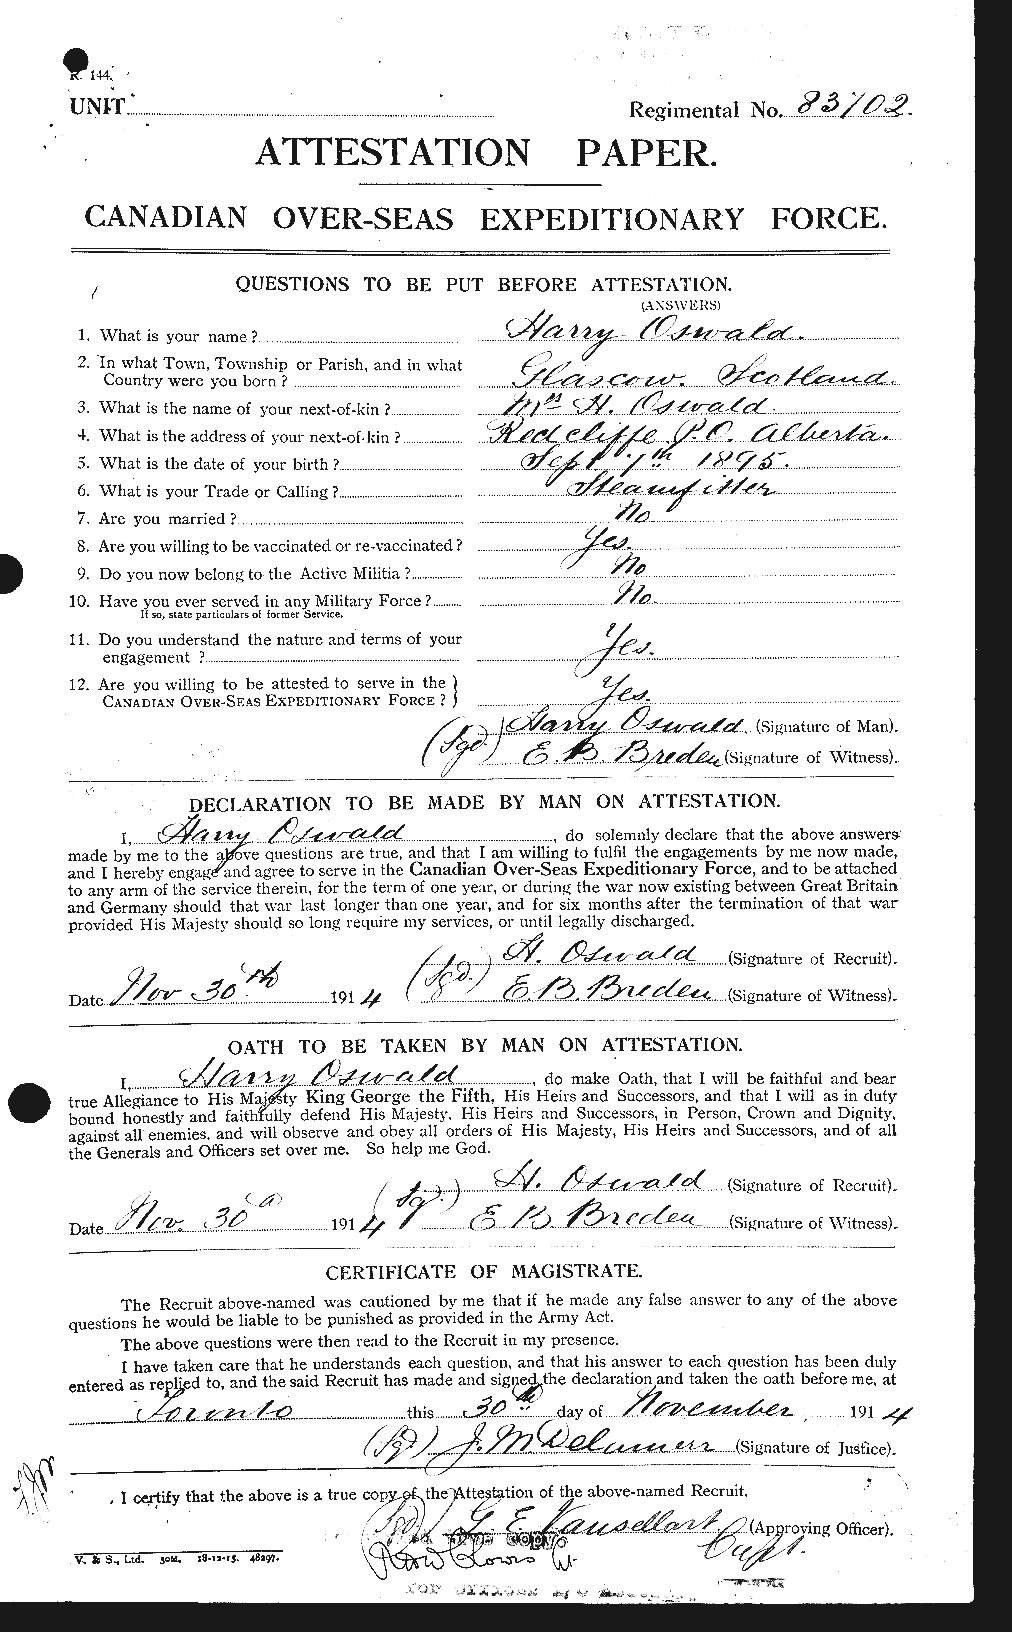 R. 144.
UNIT Regimental No. 83702.
ATTESTATION PAPER.
CANADIAN OVER-SEAS EXPEDITIONARY FORCE.
QUESTIONS TO BE PUT BEFORE ATTESTATION.
(ANSWERS)
1. What is your name? Harry Oswald.
2. In what Town, Township or Parish, and in what
Country were you born? Glascow. Scotland.
3. What is the name of your next-of-kin? Mrs H. Oswald.
4. What is the address of your next-of-kin? Redcliffe P.O. Alberta.
5. What is the date of your birth? Sept 7th 1895.
6. What is your Trade or Calling? Steamfitter
7. Are you married? No
8. Are you willing to be vaccinated or re-vaccinated? Yes.
9. Do you now belong to the Active Militia? No
10. Have you ever served in any Military Force? No.
If so, state particulars of former Service.
11. Do you understand the nature and terms of your
engagement? Yes.
12. Are you willing to be attested to serve in the
CANADIAN OVER-SEAS EXPEDITIONARY FORCE? Yes.
Harry Oswald. (Signature of Man).
(Sgd.) E. B. Breden (Signature of Witness).
DECLARATION TO BE MADE BY MAN ON ATTESTATION.
I, Harry Oswald, do solemnly declare that the above answers
made by me to the above questions are true, and that I am willing to fulfil the engagements by me now made,
and I hereby engage and agree to serve in the Canadian Over-Seas Expeditionary Force, and to be attached
to any arm of the service therein, for the term of one year, or during the war now existing between Great Britain
and Germany should that war last longer than one year, and for six months after the termination of that war
provided His Majesty should so long require my services, or until legally discharged.
(Sgd.) H. Oswald (Signature of Recruit).
Date Nov 30th 1914 E. B. Breden (Signature of Witness).
OATH TO BE TAKEN BY MAN ON ATTESTATION.
I, Harry Oswald, do make Oath, that I will be faithful and bear
true Allegiance to His Majesty King George the Fifth, His Heirs and Successors, and that I will as in duty
bound honestly and faithfully defend His Majesty, His Heirs and Successors, in Person, Crown and Dignity,
against all enemies, and will observe and obey all orders of His Majesty, His Heirs and Successors, and of all
the Generals and Officers set over me. So help me God.
(Sgd.) H. Oswald (Signature of Recruit).
Date Nov. 30 1914 E B Breden (Signature of Witness).
CERTIFICATE OF MAGISTRATE.
The Recruit above-named was cautioned by me that if he made any false answer to any of the above
questions he would be liable to be punished as provided in the Army Act.
The above questions were then read to the Recruit in my presence.
I have taken care that he understands each question, and that his answer to each question has been duly
entered as replied to, and the said Recruit has made and signed the declaration and taken the oath before me, at
Toronto this 30th day of November 1914
(Sgd) J. M. (Signature of Justice).
I certify that the above is a true copy of the Attestation of the above-named Recruit.
(Sgd) G E (Approving Officer).
Capt.
V. & S., Ltd. 50M. 18-12-15. 48297.